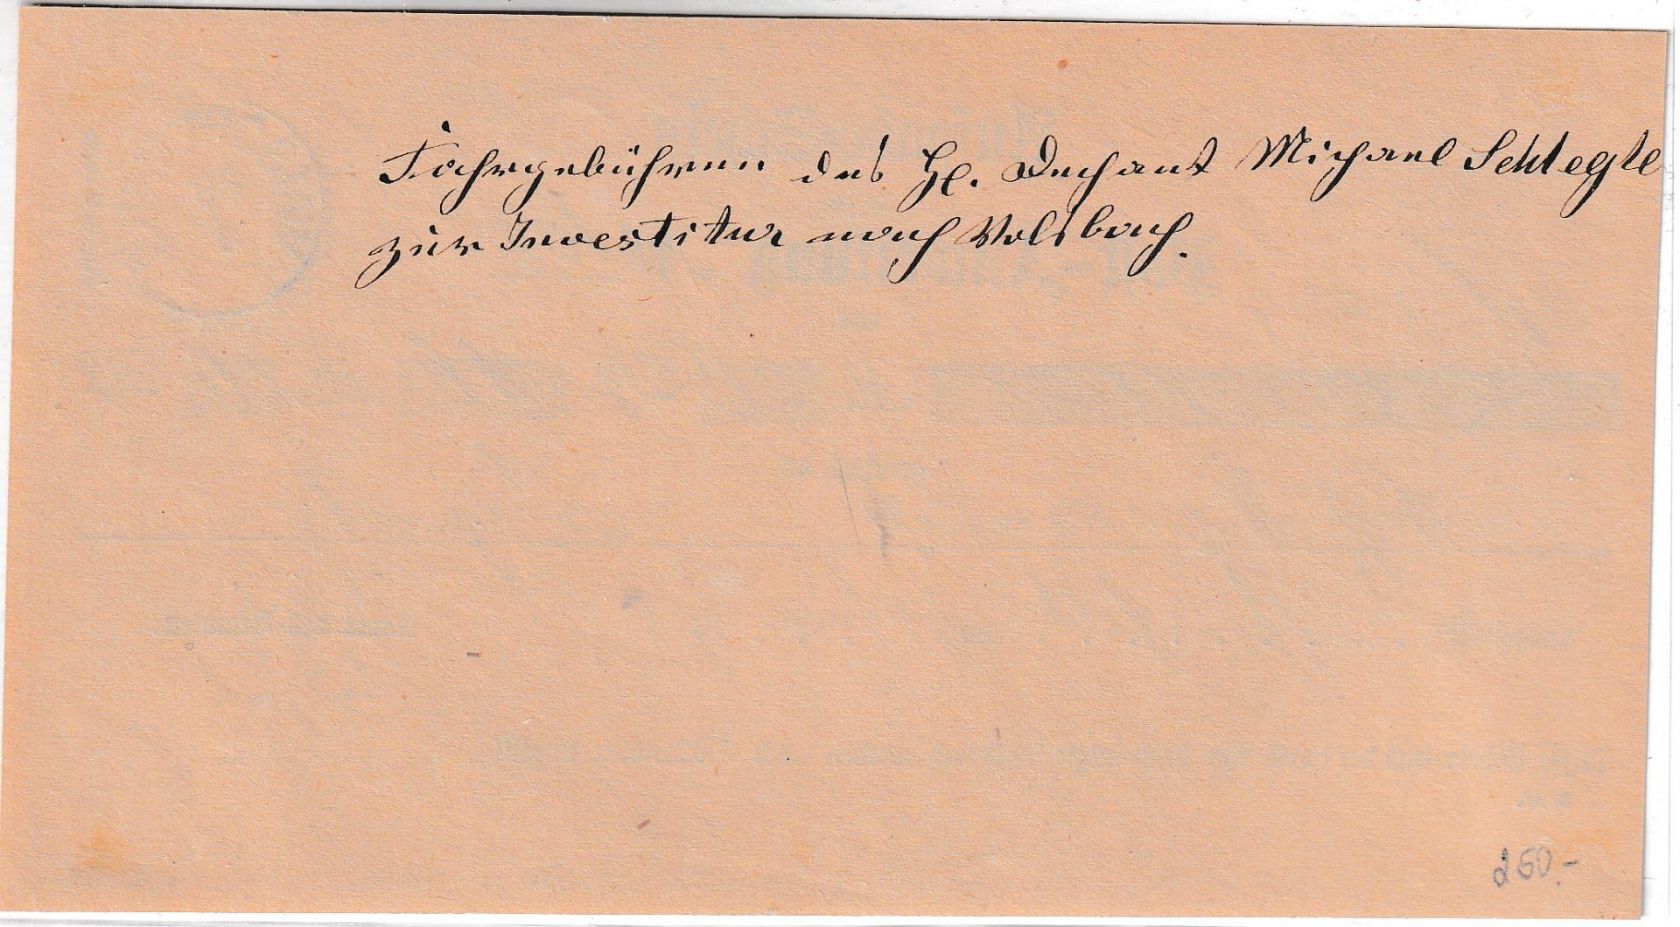 Fahrgebühren des H. Dechant Michael Schlegle
zur Investitur nach Volsbach.
250.-